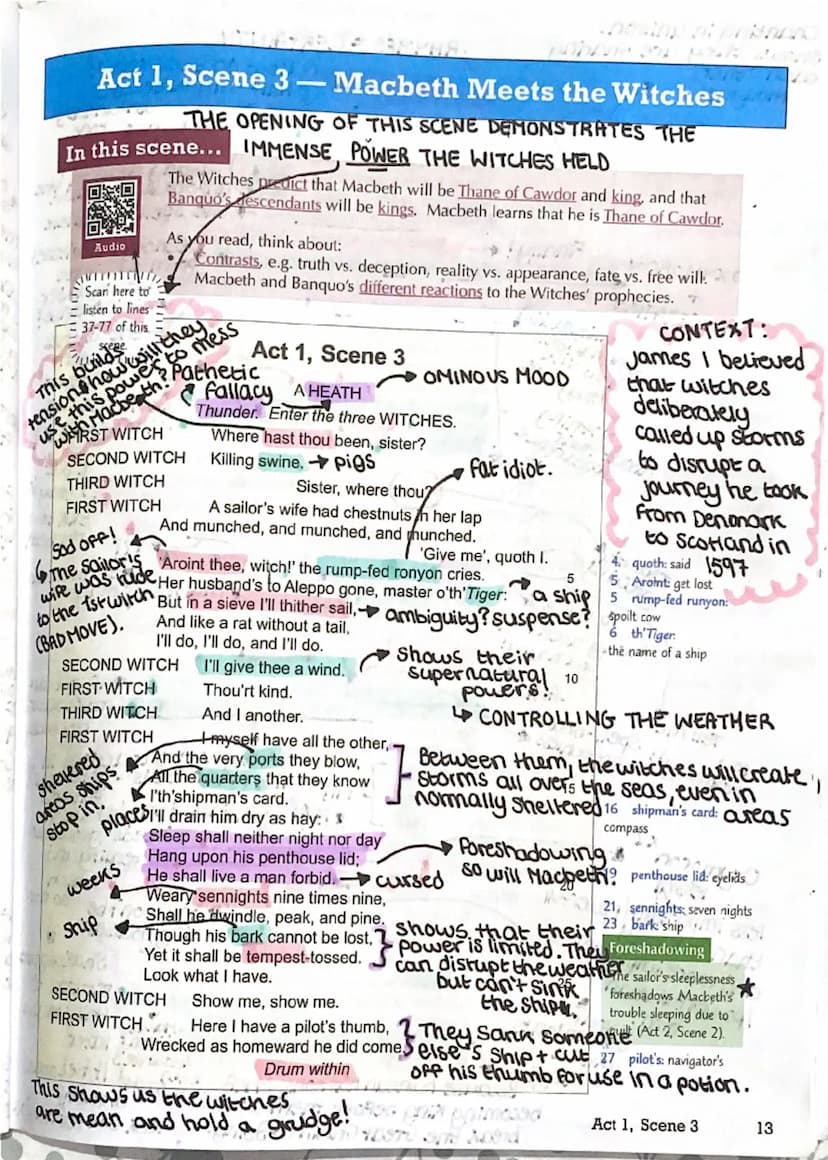 Act 1, Scene 3 — Macbeth Meets the Witches
THE OPENING OF THIS SCENE DEMONSTRATES THE
IMMENSE POWER THE WITCHES HELD
In this scene...
The Witches predict that Macbeth will be Thane of Cawdor and king, and that
Banquo's descendants will be kings. Macbeth learns that he is Thane of Cawdor.
As you read, think about:
• Contrasts, e.g. truth vs. deception, reality vs. appearance, fate vs. free will.
Macbeth and Banquo's different reactions to the Witches' prophecies.
Audio
Scan here to
listen to lines
37-77 of this
scene
This builds
tension & how will they
use this power to mess
with Macbeth?
CONTEXT:
James I believed
that witches
deliberately
called up storms
to disrupt a
journey he took
from Denmark
to Scotland in
1597
Act 1, Scene 3
Pathetic
fallacy
A HEATH
OMINOUS MOOD
Thunder. Enter the three WITCHES.
FIRST WITCH Where hast thou been, sister?
SECOND WITCH Killing swine. → pigs
THIRD WITCH Sister, where thou?
fat idiot.
FIRST WITCH A sailor's wife had chestnuts in her lap
And munched, and munched, and munched.
'Give me', quoth I.
'Aroint thee, witch!' the rump-fed ronyon cries. 5
Her husband's to Aleppo gone, master o'th'Tiger: → a ship
But in a sieve I'll thither sail, → ambiguity? suspense?
And like a rat without a tail,
I'll do, I'll do, and I'll do.
Sod off!
↳ The sailor's
wife was rude
to the 1st witch
(BAD MOVE).
4. quoth: said
5 Aroint: get lost
5 rump-fed runyon:
spoilt cow
6 th'Tiger:
the name of a ship
SECOND WITCH I'll give thee a wind.
Shows their
supernatural
powers!
↳ CONTROLLING THE WEATHER
FIRST WITCH Thou'rt kind. 10
THIRD WITCH And I another.
FIRST WITCH I myself have all the other,
And the very ports they blow,
All the quarters that they know
I'th'shipman's card.
I'll drain him dry as hay:
sheltered
areas ships
stop in.
places
Between them, the witches will create
storms all over the seas, even in
normally sheltered areas
16 shipman's card:
compass
Sleep shall neither night nor day
Hang upon his penthouse lid;
He shall live a man forbid. → cursed
Foreshadowing
so will Macbeth! 20
19 penthouse lid: eyelids
Weary sennights nine times nine,
weeks
Shall he dwindle, peak, and pine.
Though his bark cannot be lost,
ship
Yet it shall be tempest-tossed.
Look what I have.
shows that their
power is limited. They
can disrupt the weather
but can't sink
the ship.
21 sennights: seven nights
23 bark: ship
Foreshadowing
The sailor's sleeplessness
foreshadows Macbeth's
trouble sleeping due to
guilt (Act 2, Scene 2).
SECOND WITCH Show me, show me.
FIRST WITCH Here I have a pilot's thumb,
Wrecked as homeward he did come.
Drum within
They sank someone
else's ship + cut
off his thumb for use in a potion.
27 pilot's: navigator's
This shows us the witches
are mean and hold a grudge!
Act 1, Scene 3 13